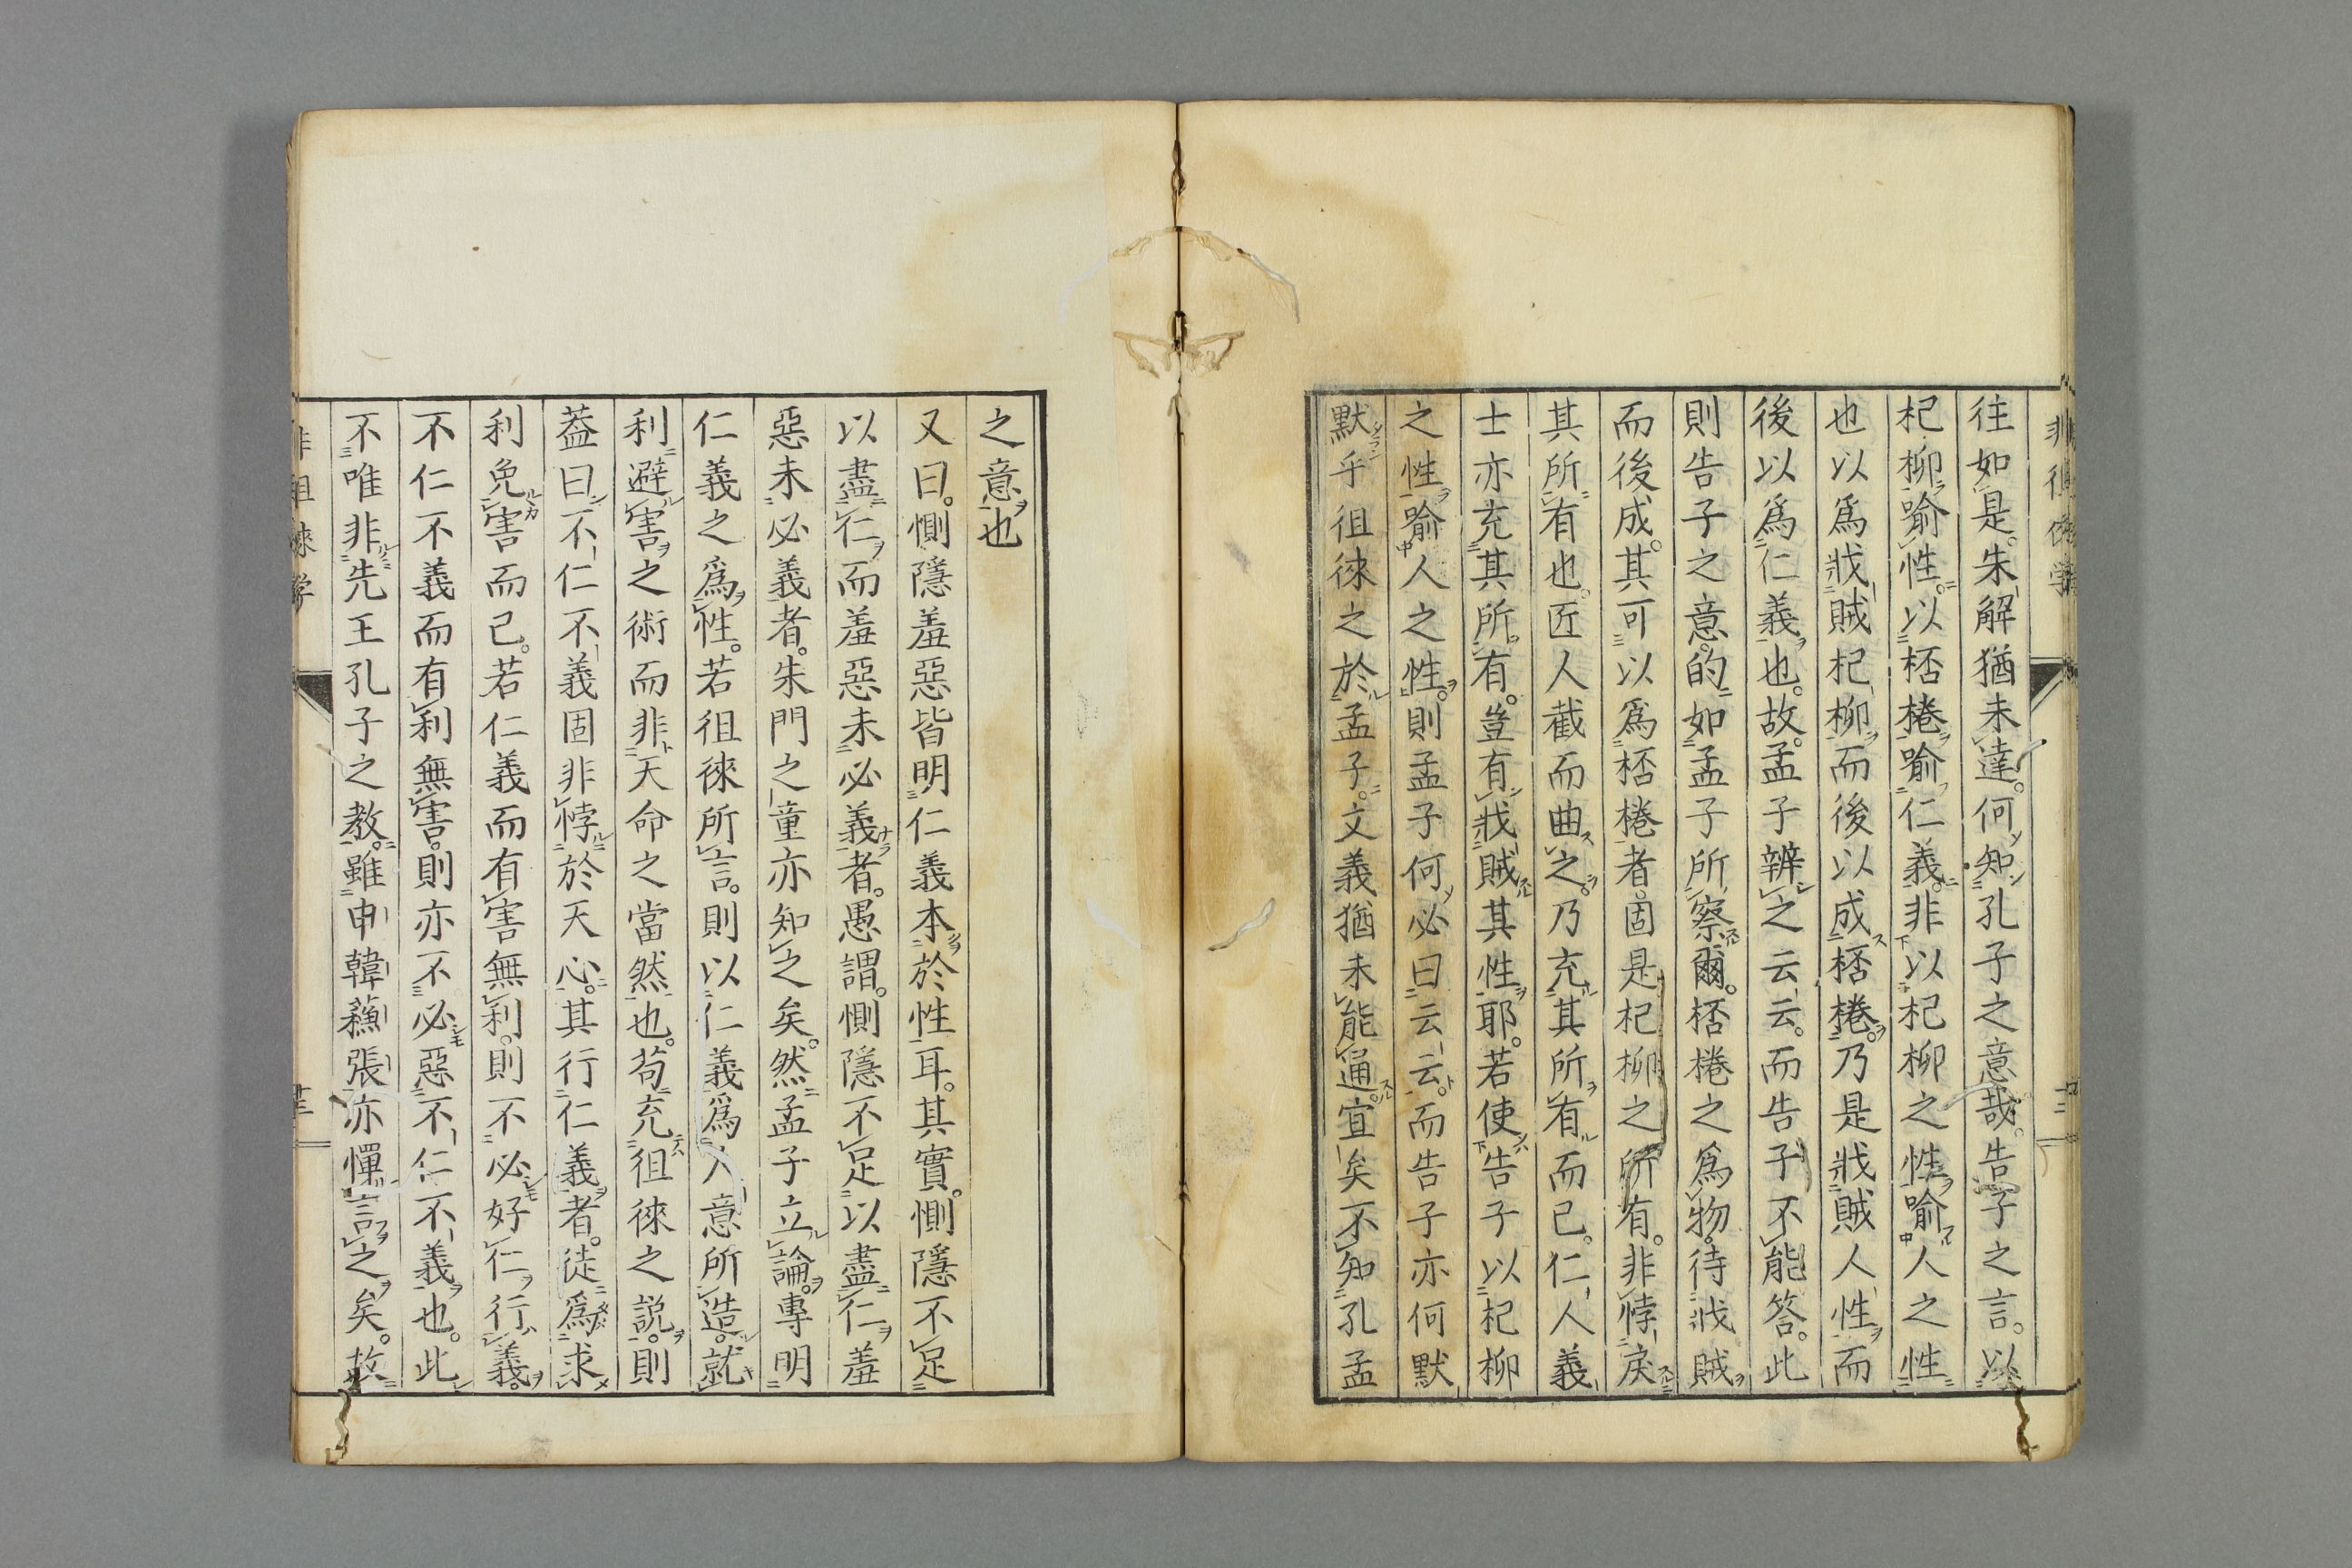 往如是。朱解猶未達。何知孔子之意哉。告子之言。以
杞柳喻性。以桮棬喻仁義。非以杞柳之性喻人之性
也以爲戕賊杞柳而後以成桮棬。乃是戕賊人性而
後以爲仁義也。故孟子辨之云云。而告子不能答。此
則告子之意。的如孟子所察爾。桮棬之爲物。待戕賊
而後成。其可以爲桮棬者。固是杞柳之所有。非悖戾
其所有也。匠人截而曲之。乃充其所有而已。仁人義
士亦充其所有。豈有戕賊其性耶。若使告子以杞柳
之性喻人之性。則孟子何必曰云云。而告子亦何默
默乎徂徠之於孟子。文義猶未能通。宜矣不知孔孟
之意也
又曰。惻隱羞惡皆明仁義本於性耳。其實。惻隱不足
以盡仁而羞惡未必義者。愚謂。惻隱不足以盡仁羞
惡未必義者。朱門之童亦知之矣。然孟子立論。專明
仁義之爲性。若徂徠所言。則以仁義爲人意所造。就
利避害之術而非天命之當然也。苟充徂徠之説。則
葢曰不仁不義固非悖於天心。其行仁義者。徒爲求
利免害而已。若仁義而有害無利。則不必好仁行義。
不仁不義而有利無害。則亦不必惡不仁不義也。此
不唯非先王孔子之教。雖申韓蘇張亦憚言之矣。故